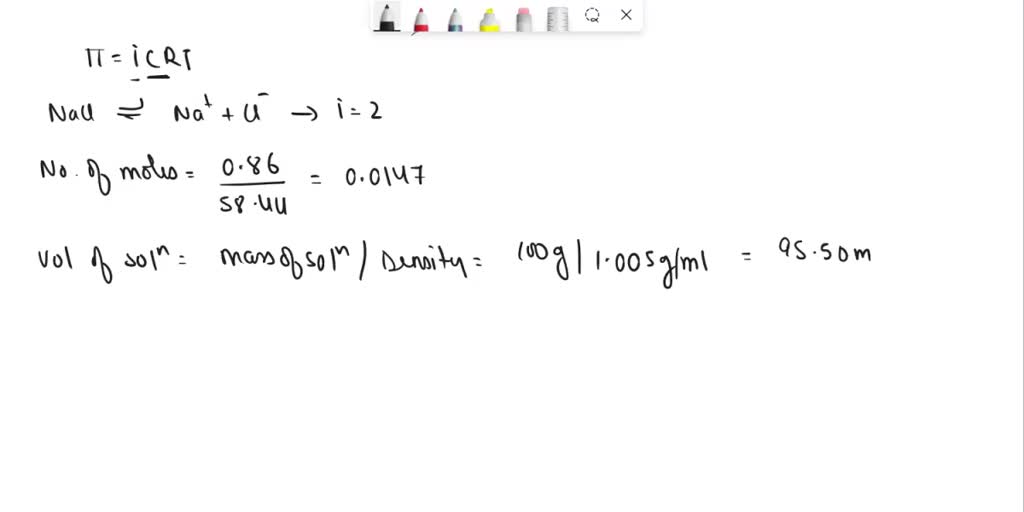 Π = iCRT
NaCl ⇌ Na⁺ + Cl⁻ → i = 2
No. of moles = 0.86 / 58.44 = 0.0147
Vol of solⁿ = mass of solⁿ / Density = 100g / 1.005g/ml = 95.50m